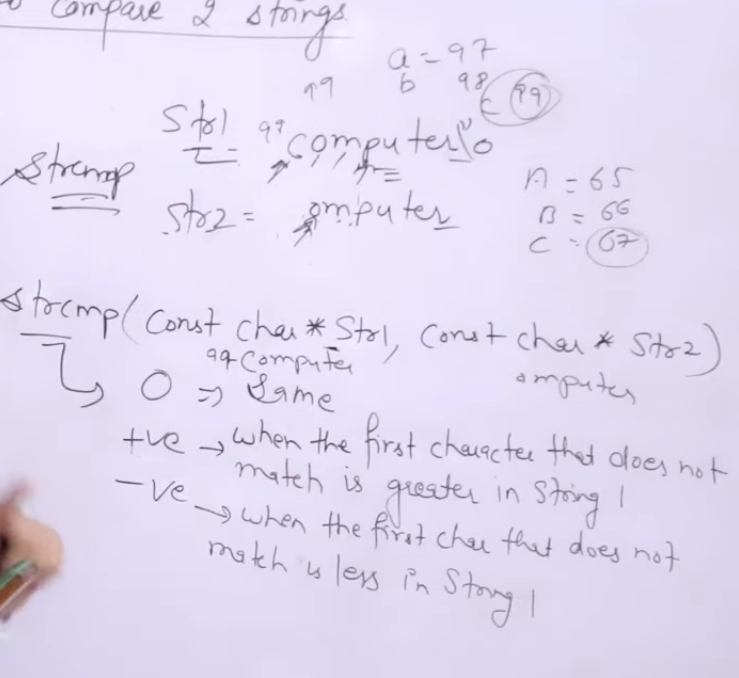 Compare 2 strings
a = 97
99 b 98
c 99
Str1 = 99 computer\0
Strcmp
A = 65
B = 66
Str2 = omputer
C = 67
strcmp(const char * Str1, const char * Str2)
99 Computer
omputer
0 => Same
+ve → when the first character that does not
match is greater in String 1
-ve → when the first char that does not
match is less in String 1